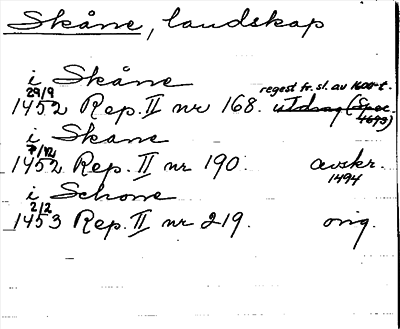 Skåne, landskap
i Skåne
29/9 regest fr. sl. av 1600-t.
1452 Rep. II nr 168. utdrag (Spec. 1693)
i Skane
7/12
1452 Rep. II nr 190. avskr. 1494
i Schone
2/2
1453 Rep. II nr 219. orig.